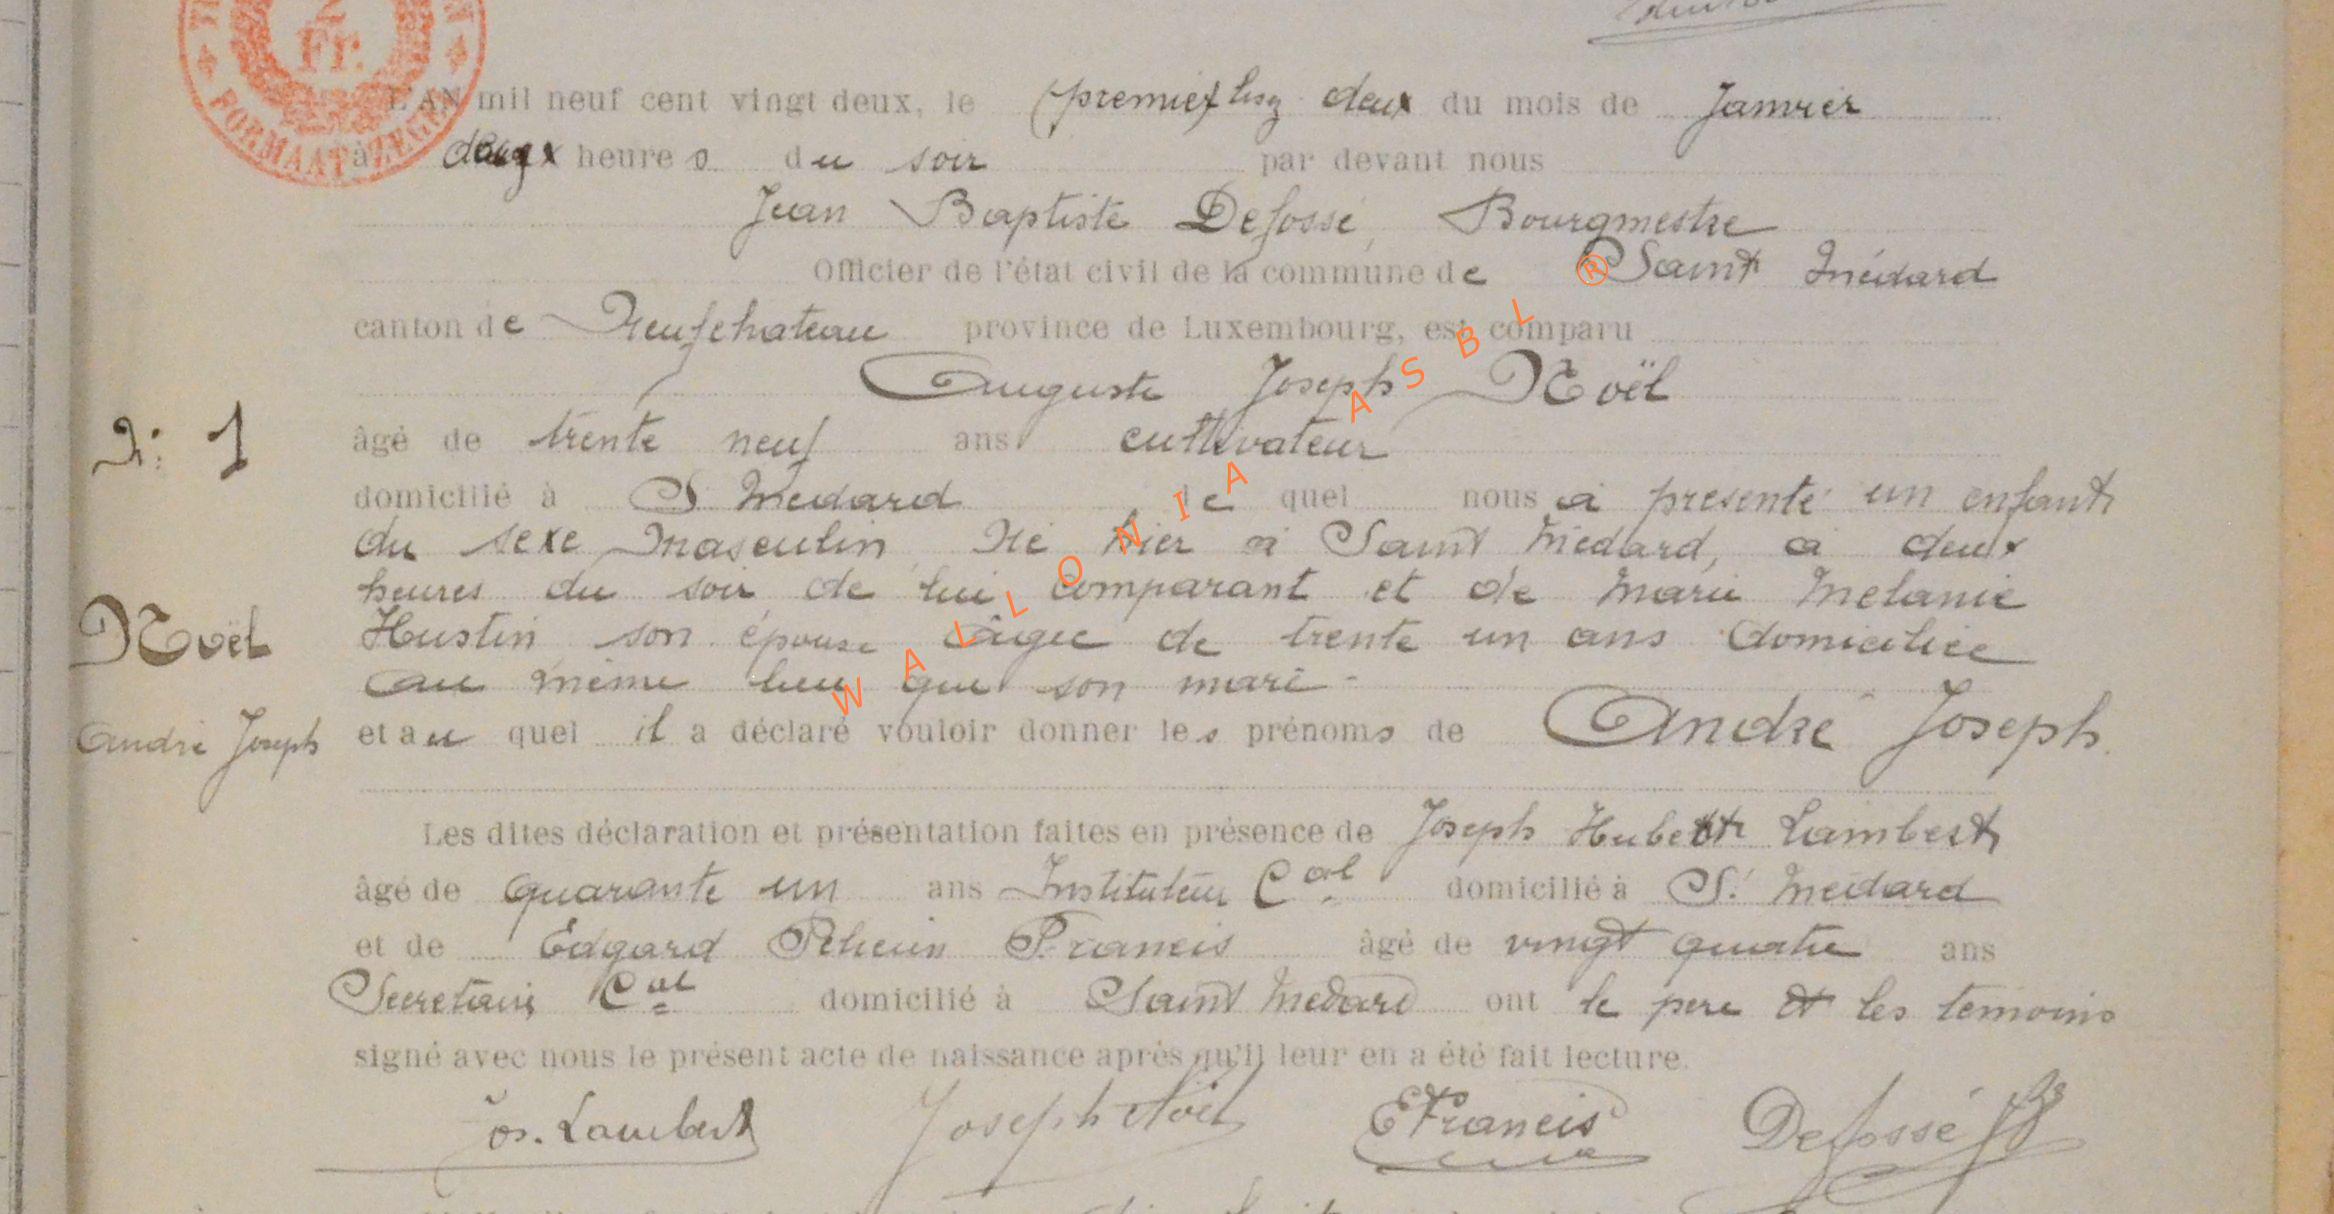 Fr.
FORMAATZEGEL
L'AN mil neuf cent vingt deux, le (premier) lisez deux du mois de Janvier
à deux heures du soir par devant nous
Jean Baptiste Defossé, Bourgmestre
Officier de l'état civil de la commune de Saint Médard
canton de Neufchateau province de Luxembourg, est comparu
Auguste Joseph Noël
N: 1
âgé de trente neuf ans cultivateur
domicilié à St Médard le quel nous a présenté un enfant
du sexe Masculin, Né hier à Saint Médard, à deux
heures du soir de lui comparant et de Marie Melanie
Noël
Hustin son épouse âgée de trente un ans domiciliée
au même lieu que son mari -
André Joseph
et au quel il a déclaré vouloir donner les prénoms de André Joseph.
Les dites déclaration et présentation faites en présence de Joseph Hubert Lambert
âgé de quarante un ans Instituteur Cal domicilié à St. Médard
et de Edgard Francis âgé de vingt quatre ans
Secretaire Cal domicilié à Saint Medard ont le père et les témoins
signé avec nous le présent acte de naissance après qu'il leur en a été fait lecture.
Jos. Lambert Joseph Noël EFrancis Defossé JB
WALLONIA ASBL ®